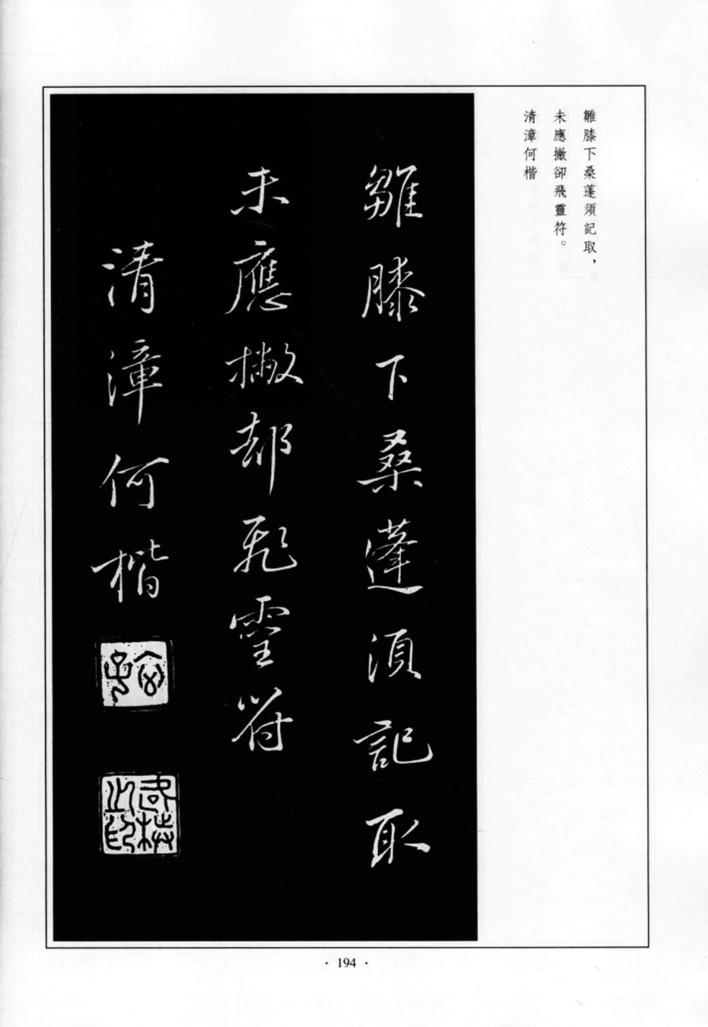 雛膝下桑蓬須記取，
未應撇卻飛靈符。
清漳何楷
雛膝下桑蓬須記取
未應撇却飛霊符
清漳何楷
· 194 ·